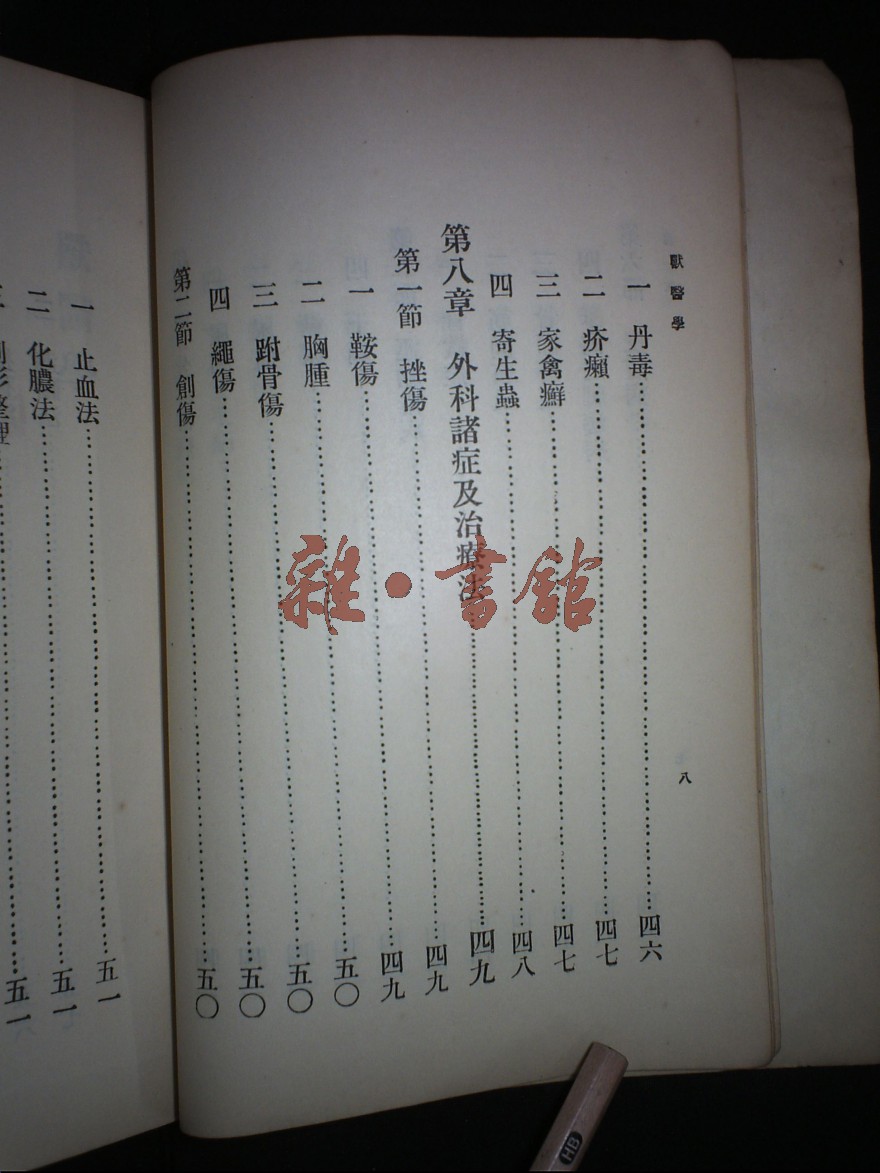 獸醫學
一 丹毒……四六
二 疥癩……四七
三 家禽癬……四七
四 寄生蟲……四八
第八章 外科諸症及治療法……四九
第一節 挫傷……四九
一 鞍傷……四九
二 胸腫……五〇
三 跗骨傷……五〇
四 繩傷……五〇
第二節 創傷……五〇
八
一 止血法……五一
二 化膿法……五一
五一
雜•書館
HB